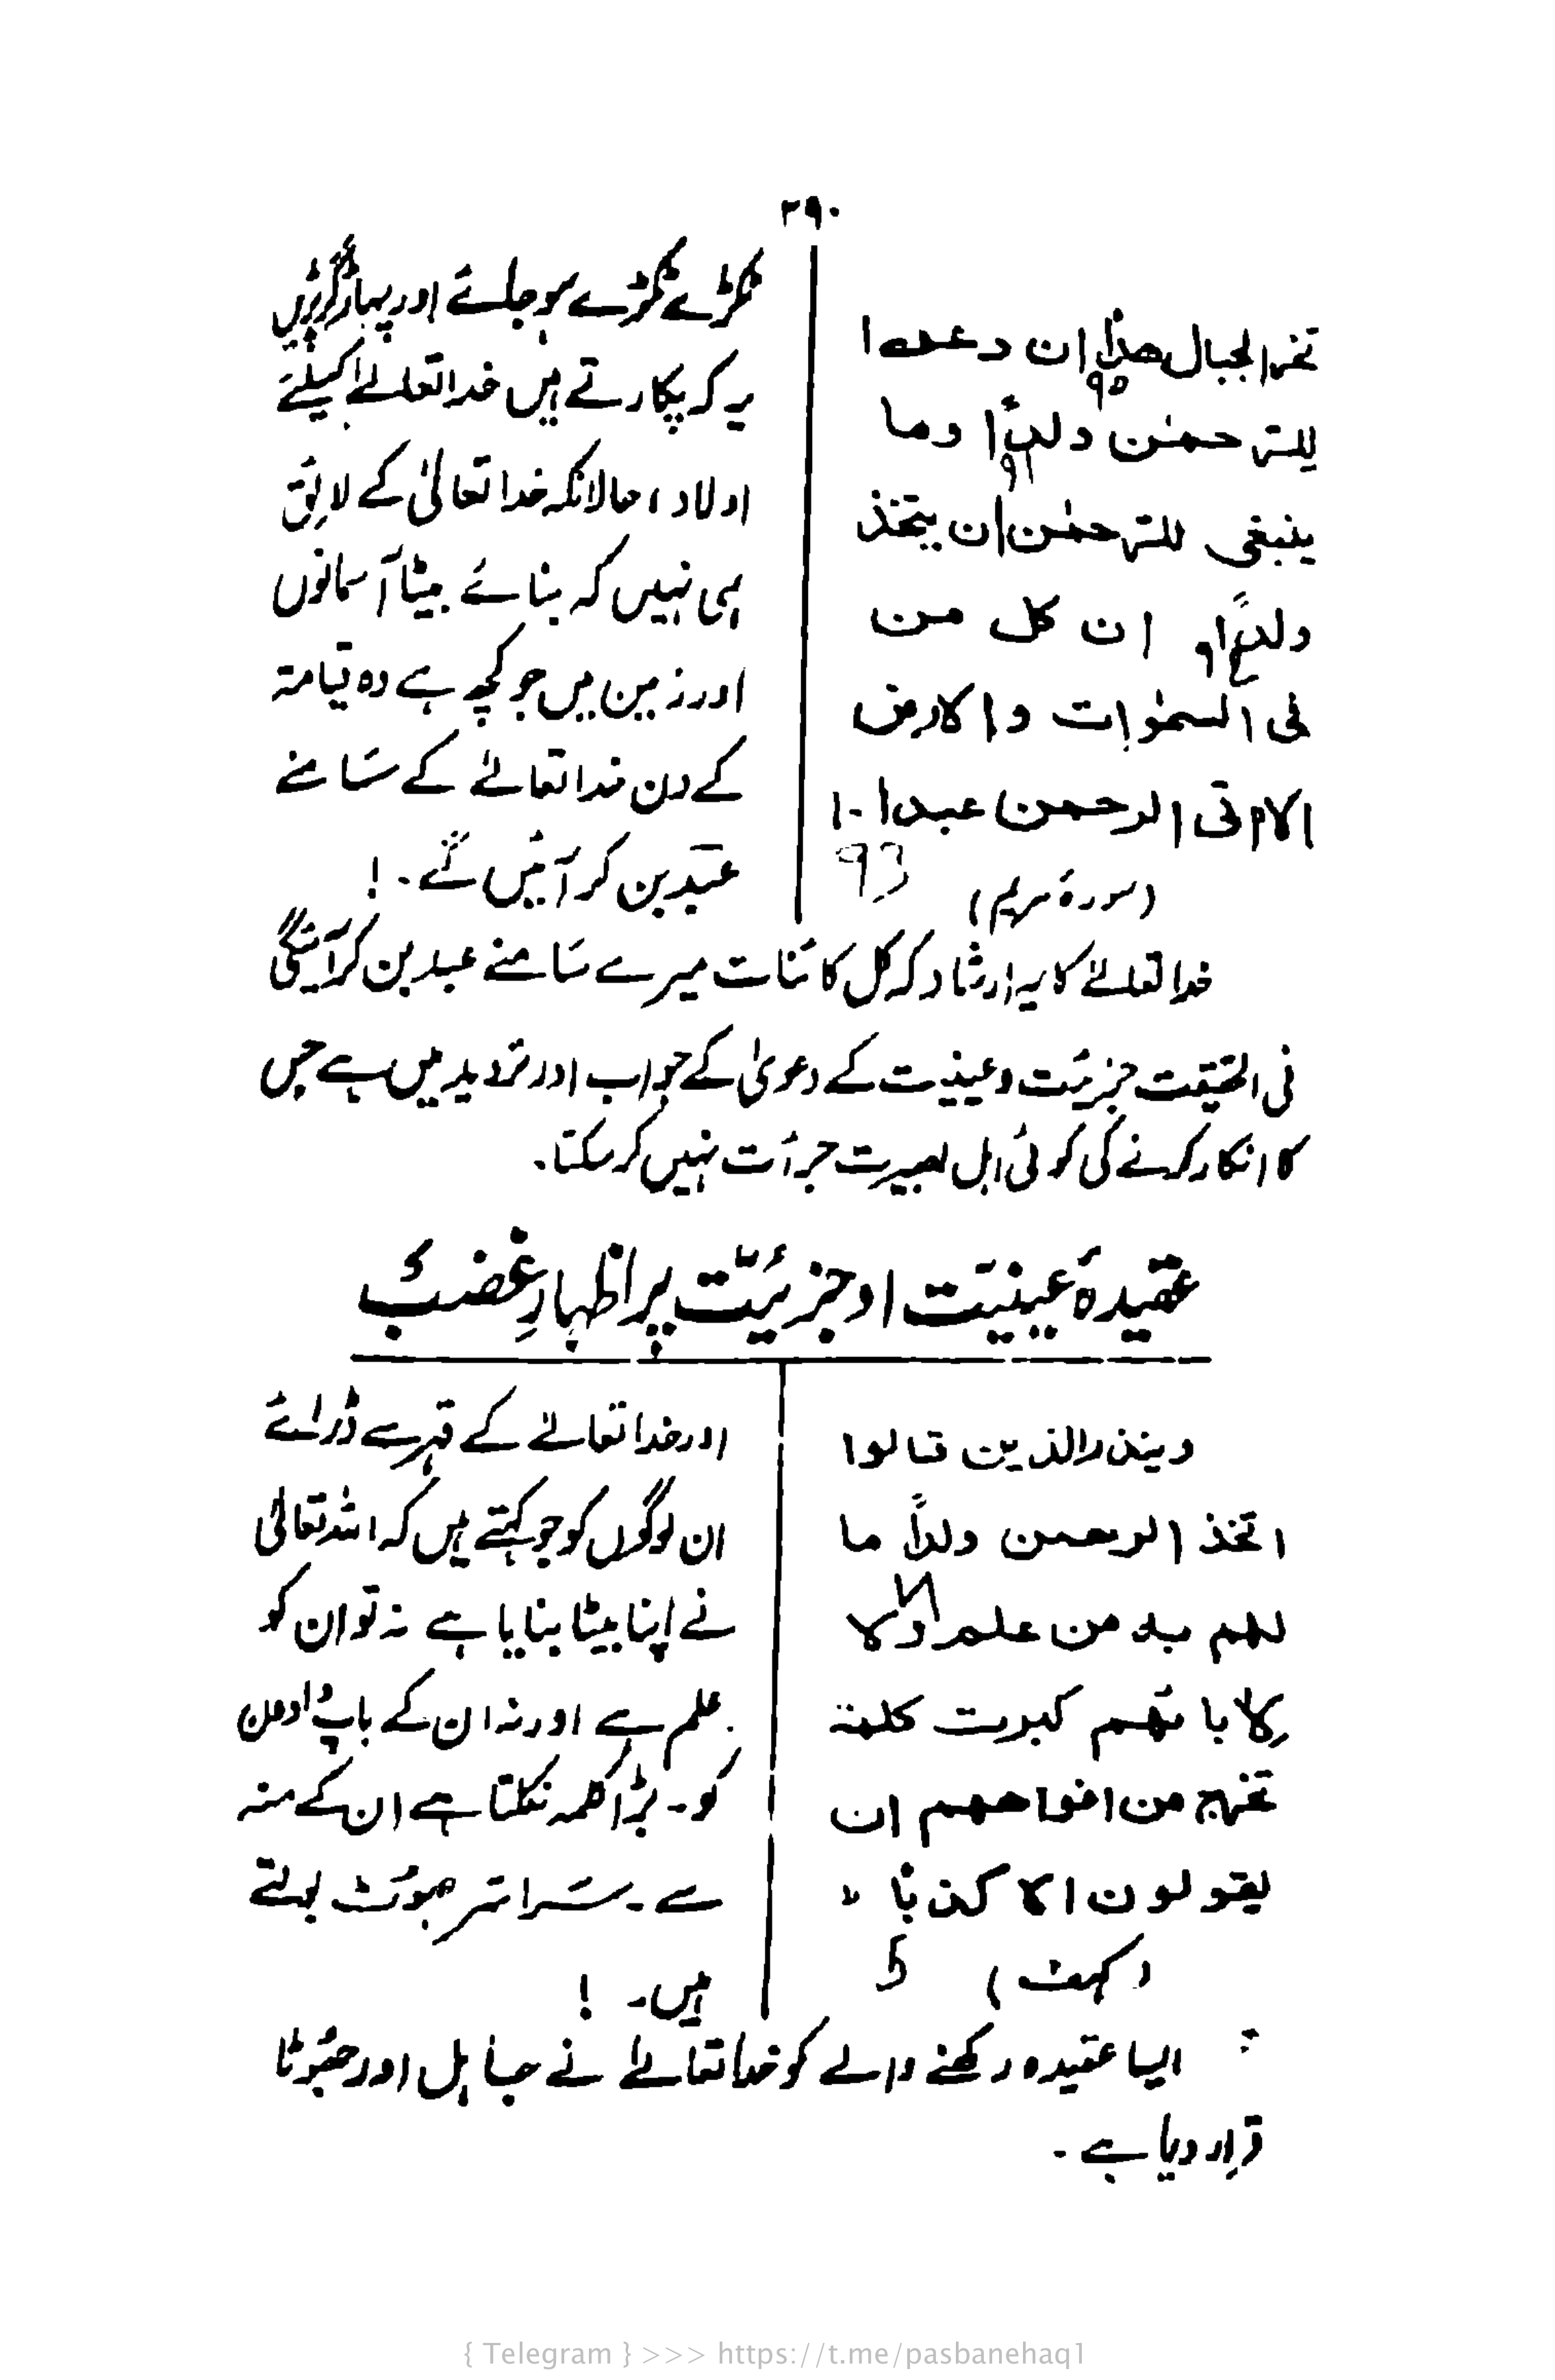 ۲۹۰
تخر الجبال هدا ان دعوا
۹۵
للرحمٰن ولداً وما
۹۱
ينبغى للرحمٰن ان يتخذ
ولداً ان كل من
فى السمٰوات والارض
الا اٰتى الرحمن عبدا ۔۱۰
(سورۂ مریم) 93
ٹکڑے ٹکڑے ہو جائے اور پہاڑ گر پڑیں
یہ کر پکارتے ہیں خدا تعالےٰ کیلئے
اولاد، حالانکہ خدا تعالیٰ کے لائق
ہی نہیں کہ بنائے بیٹا آسمانوں
اور زمین میں جو کچھ ہے وہ قیامۃ
کے دن خدا تعالےٰ کے سَامنے
عَبْد بن کر آئیں گے۔!
خدا تعالےٰ کا یہ ارشاد کہ کل کائنات میرے سَامنے عبد بن کر آئیگی
فی الحقیقت جزئیت وعینیت کے دعویٰ کے جواب اور تردید میں ہے جس
کا انکار کرنے کی کوئی اہل بصیرت جرأت نہیں کر سکتا۔
عقیدۂ عینیّت اور جزئیّت پر اظہارِ غضب
وينذر الذين قالوا
اتخذ الرحمن ولداً ما
لهم به من علم ولا
لِاٰبائهم كبرت كلمة
تخرج من افواههم ان
يقولون الا كذباً
(کہف) 5
اور خدا تعالےٰ کے قہر سے ڈرائے
ان لوگوں کو جو کہتے ہیں کہ اللہ تعالیٰ
نے اپنا بیٹا بنایا ہے نہ تو ان کو
علم ہے اور نہ ان کے باپ دادوں
کو۔ بڑا کلمہ نکلتا ہے ان کے منہ
سے۔ سَراسَر جھوٹ بولتے
ہیں۔ !
ایسا عقیدہ رکھنے والے کو خدا تعالےٰ نے جاہل اور جھوٹا
قرار دیا ہے۔
{ Telegram } >>> https://t.me/pasbanehaq1